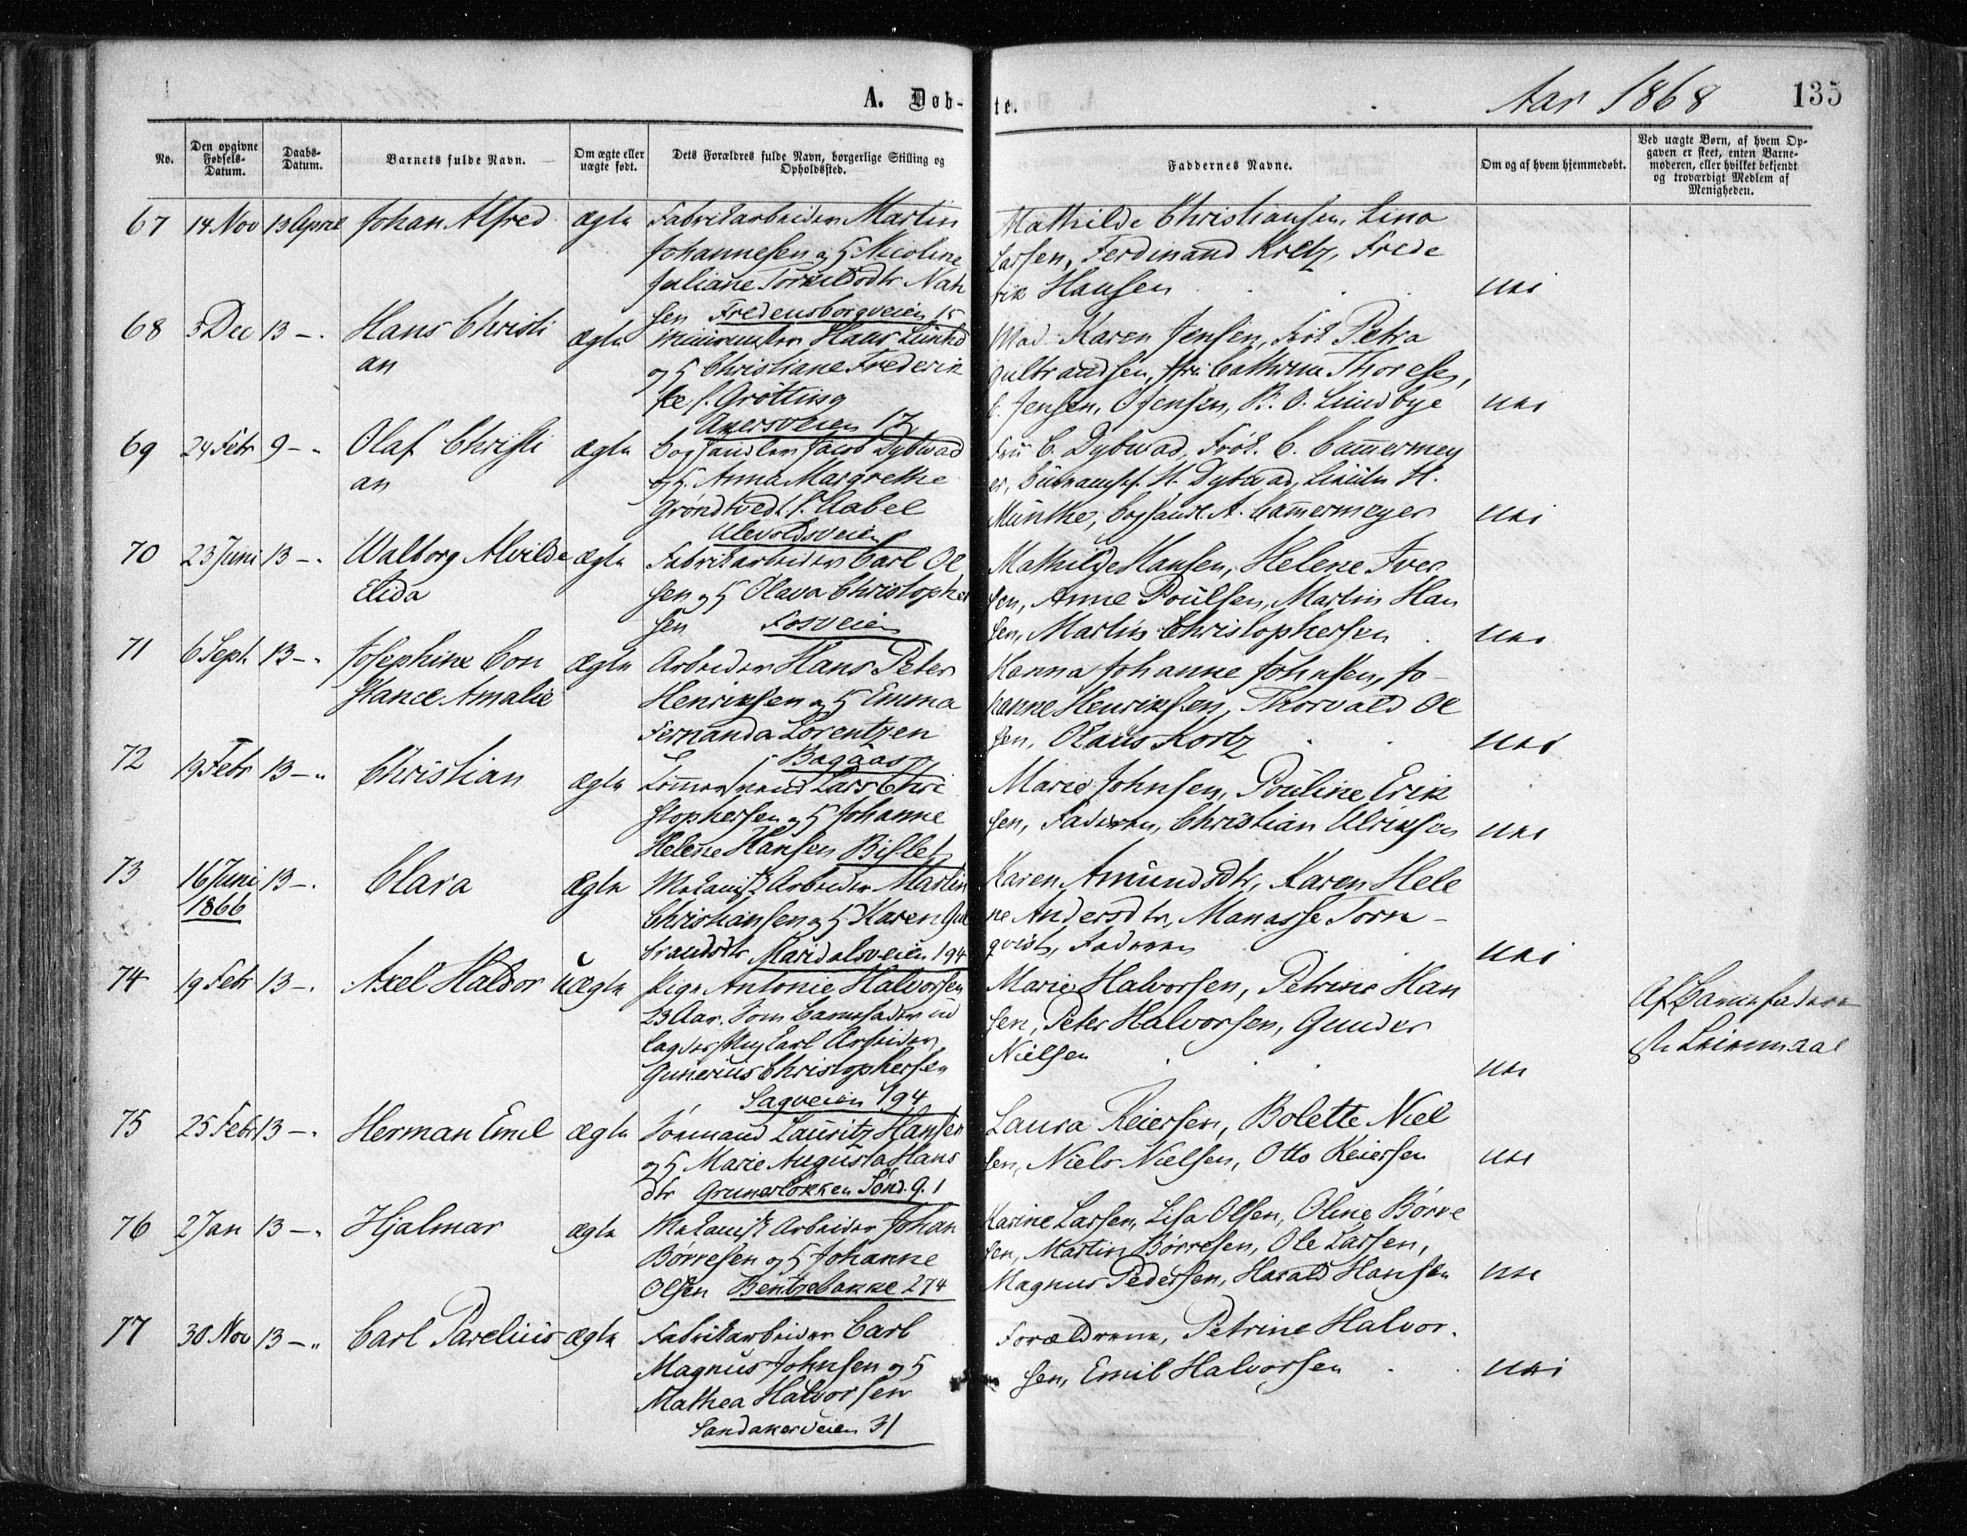 A. Døb-
te.
Aar 1868
135
No.
Den opgivne Fødsels-Datum.
Daabs-Datum.
Barnets fulde Navn.
Om ægte eller uægte født.
Dets Forældres fulde Navn, borgerlige Stilling og Opholdssted.
Faddernes Navne.
Om og af hvem hjemmedøbt.
Ved uægte Børn, af hvem Op-
gaven er skeet, enten Barne-
moderen, eller hvilket bekjendt
og troværdigt Medlem af
Menigheden.
67 14 Nov 13 April Johan Alfred ægte Fabrikarbeider Martin
Johannesen og H Nicoline
Juliane
Fredensborgveien 15
Mathilde Christiansen, Lina
Larsen, Ferdinand Kretz, Frede
rik Hansen nei
68 5 Dec 13 -. Hans Christi
an
ægte Hans
og H Christiane Frederik
ke f. Grötting
Akersveien 17
Mad. Karen Jensen, Petra
Gulbrandsen, Cathrine Thoresen,
Jensen, O Jensen, B. O. Lundbye nei
69 24 Febr 9 -. Olaf Christi
an
ægte Boghandler Jacob Dybwad
og H. Anna Margrethe
Grøndtvedt f. Aabel
Ulevoldsveien
Fru C. Dybwad, Frök. C. Cammermey
er, H. Dybwad, H.
Munthe, Boghandl A. Cammermeyer nei
70 23 Juni 13 -. Walborg Alvilde
Elida
ægte Fabrikarbeider Carl Ol
sen og H Olava Christopher
sen Fosveien
Mathilde Hansen, Helene Iver
sen, Anne Poulsen, Martin Han
sen, Martin Christophersen nei
71 6 Sept. 13 -. Josephine Con
stance Amalie
ægte Arbeider Hans Peter
Henriksen og H Emma
Fernanda Lorentzen
Bagaas
Hanna Johanne Johnsen, Jo-
hanne Henriksen, Thorvald Ol
sen, Olaus Kortz nei
72 19 Febr 13 -. Christian ægte Tømmermand Lars Chri
stophersen og H Johanne
Helene Hansen Bislet
Marie Johnsen, Pouline Erik
sen, Faderen, Christian Ulriksen nei
73 16 Juni
1866
13 -. Clara ægte Mekanisk Arbeider Martin
Christiansen og H Karen Gul
brandsdtr Maridalsveien 194
Karen Amundsdtr, Karen Hele
ne Andersdtr, Manasse Torn-
qvist, Faderen nei
74 19 Febr 13 -. Axel Haldor uægte Pige Antonie Halvorsen
23 Aar. Som Barnefader ud
lagdes Ungkarl Arbeider
Gunerius Christophersen
Sagveien 194
Marie Halvorsen, Petrine Han
sen, Peter Halvorsen, Gunder
Nielsen nei
Af Barnefaderen
75 25 Febr 13 -. Herman Emil ægte Sømand Lauritz Hansen
og H Marie Augusta Hans
dtr Grunerløkken Sønd. G. 1
Laura Reiersen, Bolette Niel
sen, Niels Nielsen, Otto Reiersen nei
76 2 Jan 13 -. Hjalmar ægte Mekanisk Arbeider Johan
Børresen og H Johanne
Olsen Bentzebakke 274
Karine Larsen, Lisa Olsen, Oline Børre
sen, Martin Børresen, Ole Larsen,
Magnus Pedersen, Harald Hansen nei
77 30 Nov 13 -. Carl Parelius ægte Fabrikarbeider Carl
Magnus Johnsen og H
Mathea Halvorsen
Sandakerveien 31
Forældrene, Petrine Halvor-
sen, Emil Halvorsen nei